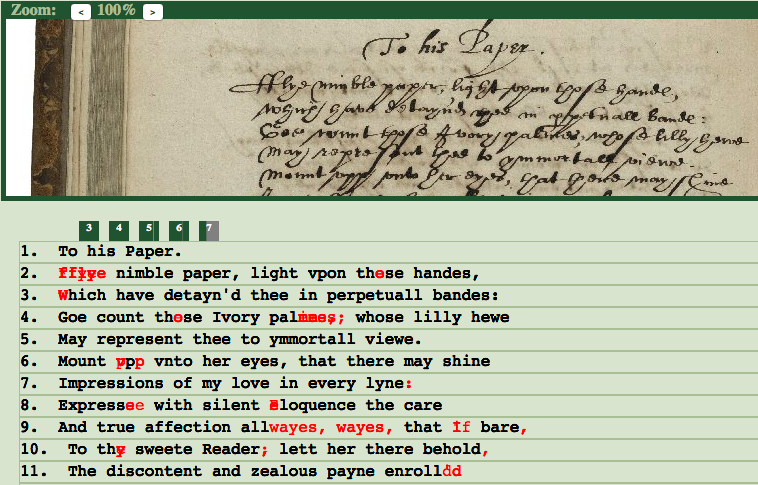 Zoom: < 100% >
To his Paper.
fflye nimble paper, light vpon those handes,
which have detaynd thee in perpetuall bandes:
Goe count those Ivory palmes, whose lilly hewe
May represent thee to ymmortall viewe.
Mount vpp vnto her eyes, that there may shine
3 4 5 6 7
1. To his Paper.
2. nimble paper, light vpon those handes,
3. Which have detayn'd thee in perpetuall bandes:
4. Goe count those Ivory whose lilly hewe
5. May represent thee to ymmortall viewe.
6. Mount vpp vnto her eyes, that there may shine
7. Impressions of my love in every lyne:
8. Expresse with silent eloquence the care
9. And true affection allwayes, wayes, that If bare,
10. To thy sweete Reader; lett her there behold,
11. The discontent and zealous payne enrolld